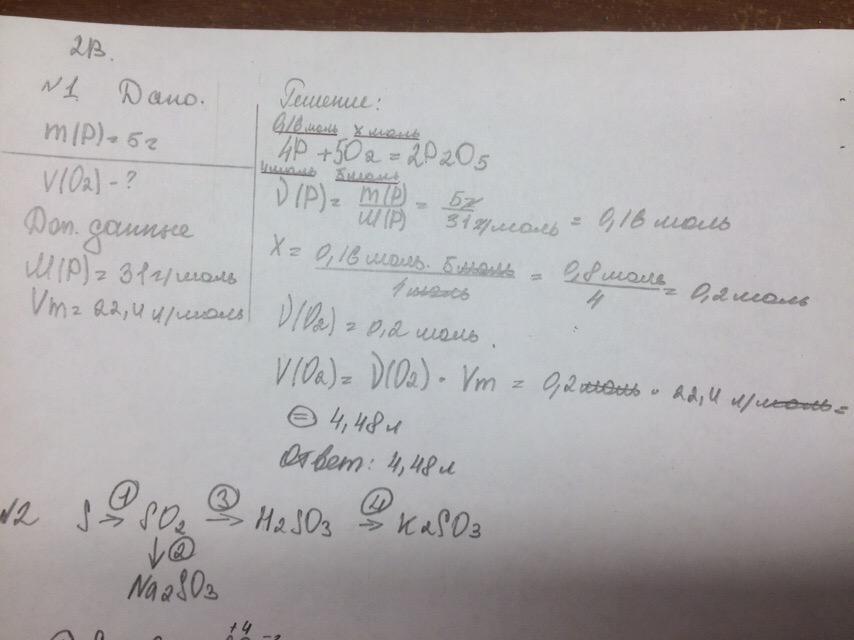 2В.
№1 Дано.
m(P) = 5г
V(O2) - ?
Доп. данные
M(P) = 31г/моль
Vm = 22,4 л/моль
Решение:
0,16 моль х моль
4P + 5O2 = 2P2O5
4моль 5моль
ν(P) = m(P)/M(P) = 5г/31г/моль = 0,16 моль
X = 0,16 моль · 5моль/4моль = 0,8 моль/4 = 0,2 моль
ν(O2) = 0,2 моль.
V(O2) = ν(O2) · Vm = 0,2моль · 22,4 л/моль =
= 4,48л
Ответ: 4,48л
№2 S →① SO2 →③ H2SO3 →④ K2SO3
↓②
Na2SO3
+4